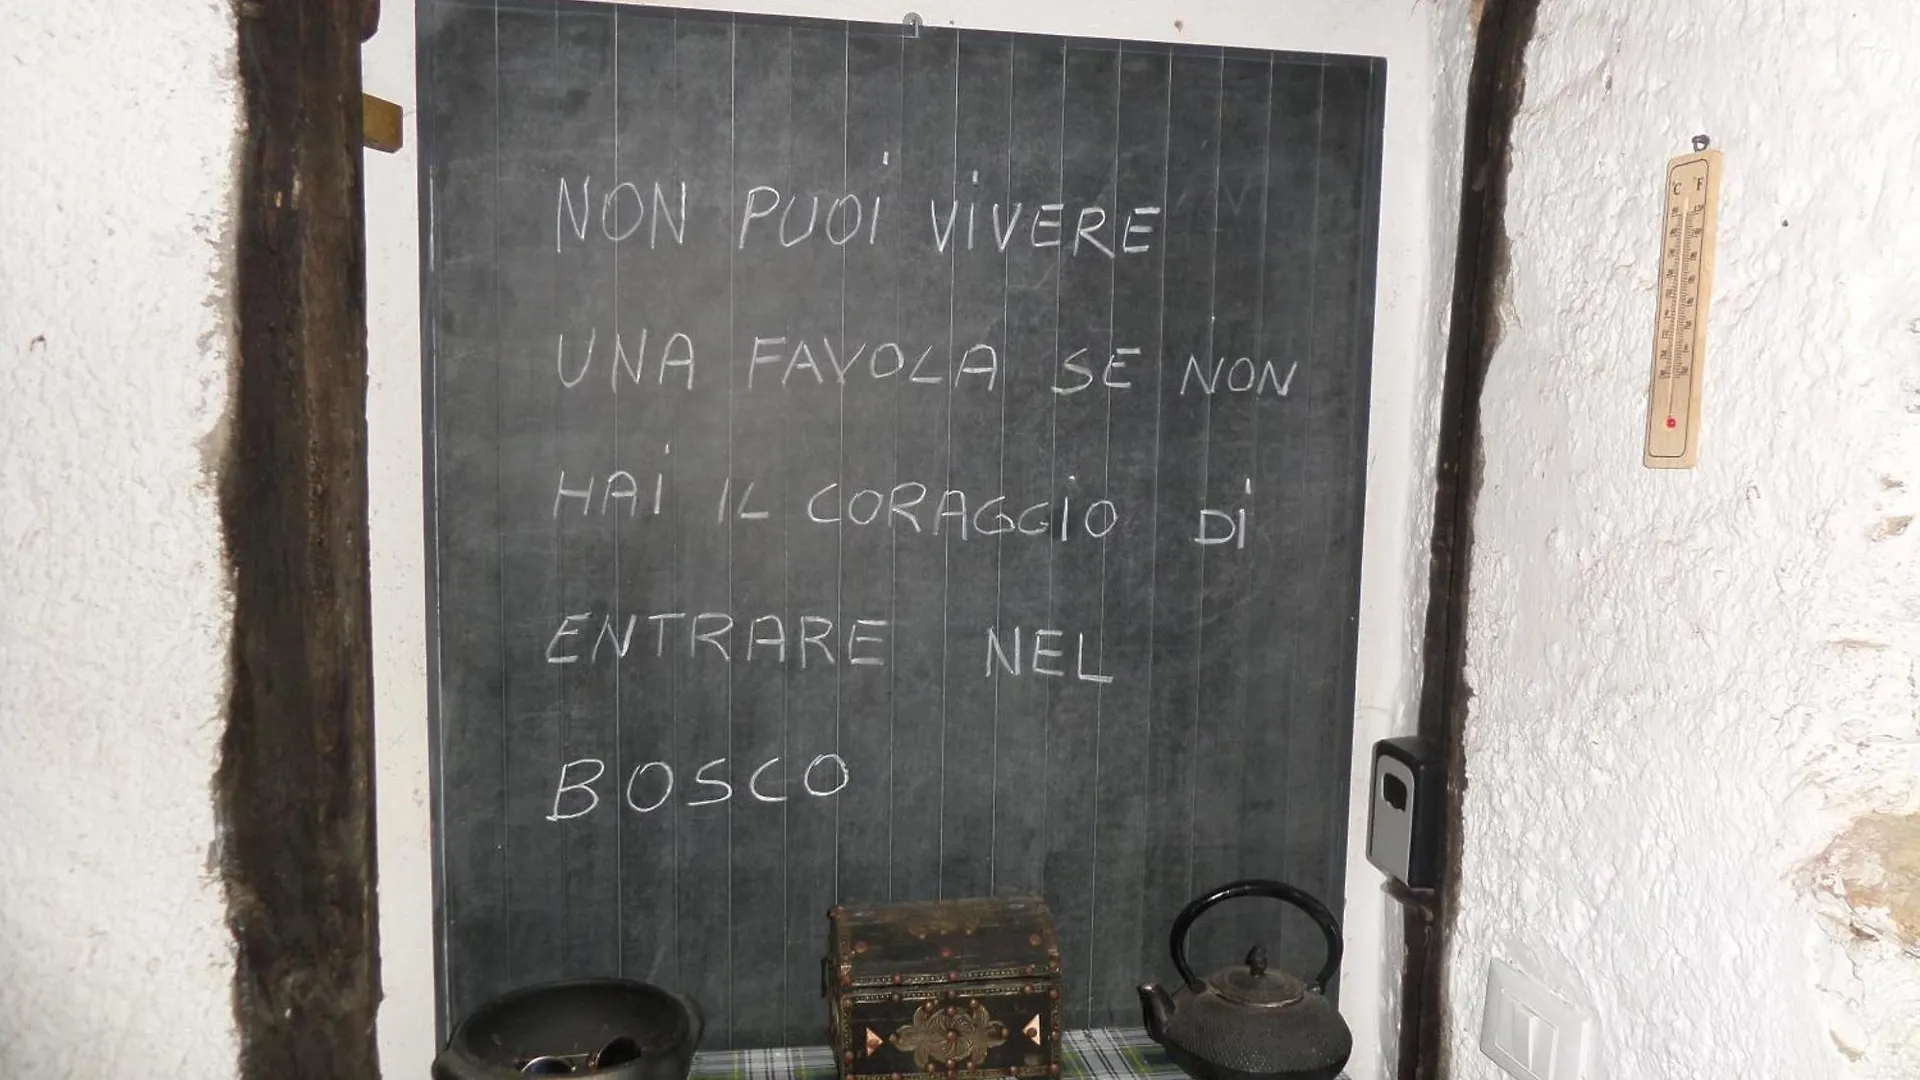 NON PUOI VIVERE
UNA FAVOLA SE NON
HAI IL CORAGGIO DI
ENTRARE NEL
BOSCO
°C °F